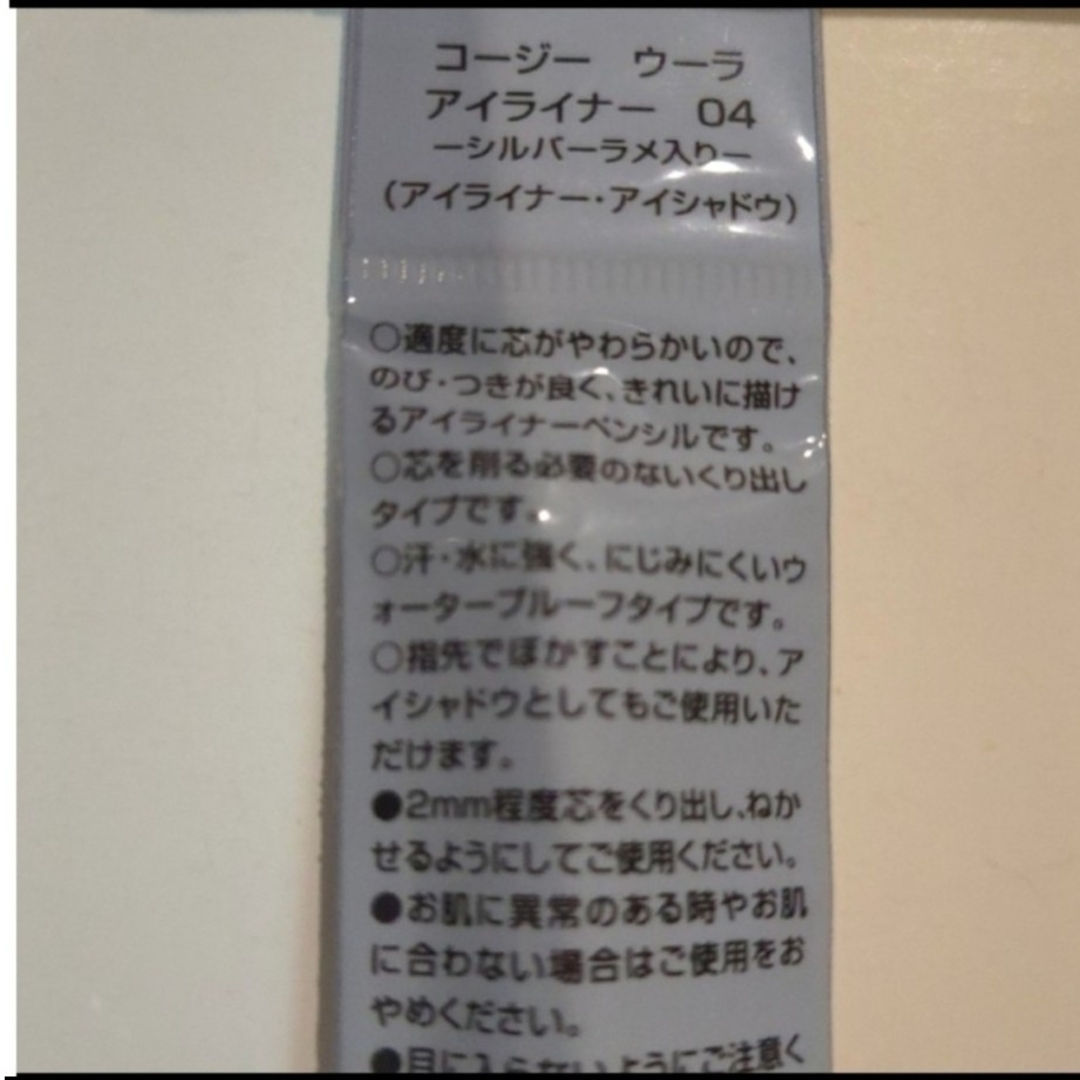 コージー ウーラ
アイライナー 04
ーシルバーラメ入りー
(アイライナー・アイシャドウ)
○適度に芯がやわらかいので、
のび・つきが良く、きれいに描け
るアイライナーペンシルです。
○芯を削る必要のないくり出し
タイプです。
○汗・水に強く、にじみにくいウ
ォータープルーフタイプです。
○指先でぼかすことにより、ア
イシャドウとしてもご使用いた
だけます。
●2mm程度芯をくり出し、ねか
せるようにしてご使用ください。
●お肌に異常のある時やお肌
に合わない場合はご使用をお
やめください。
●目に入らないようにご注意く